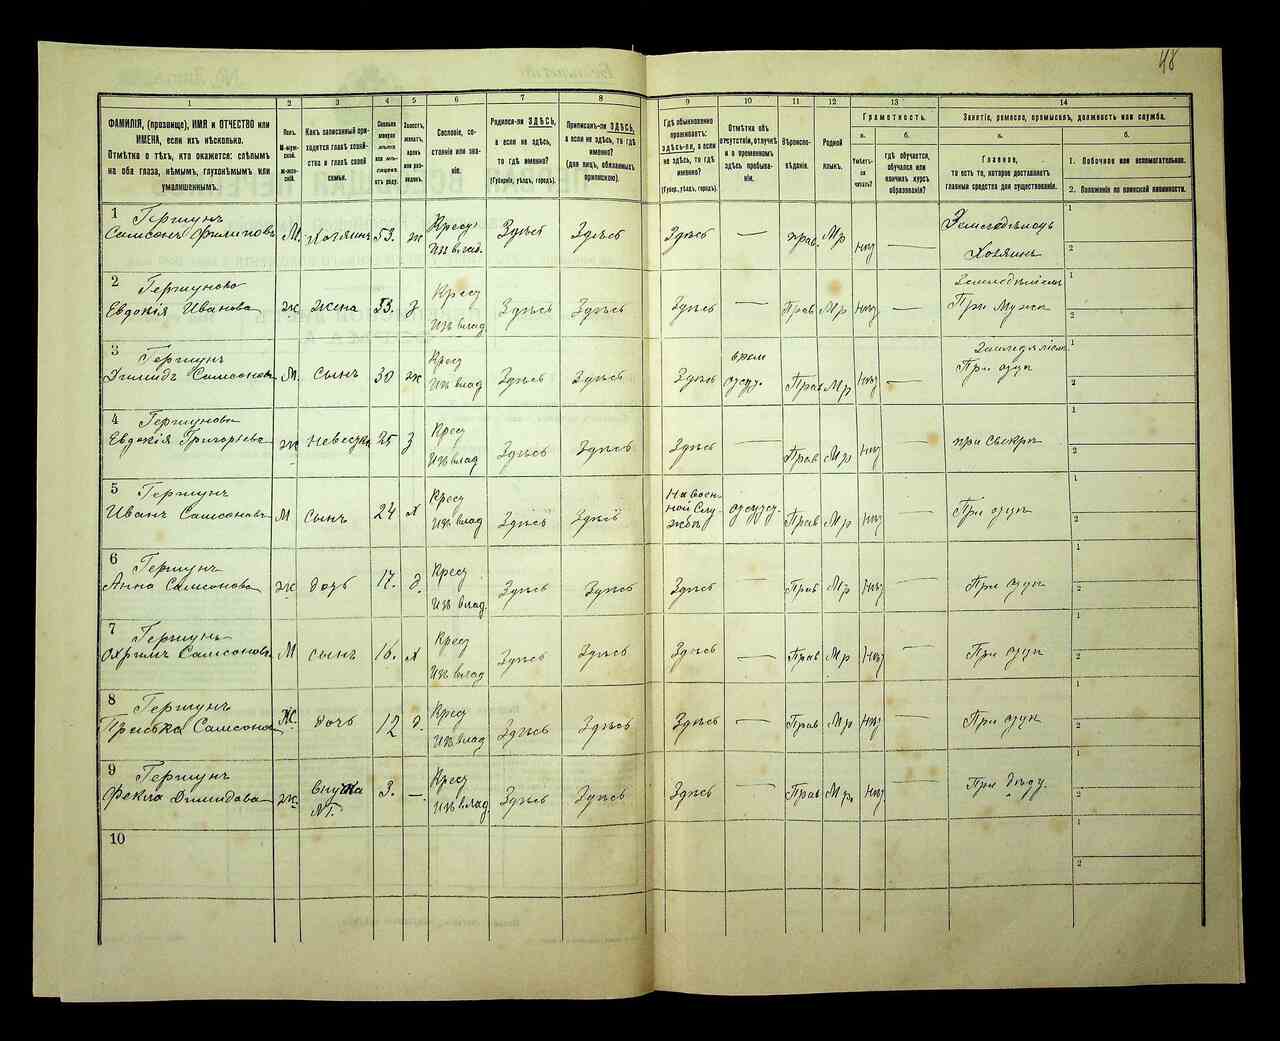 48
1 2 3 4 5 6 7 8 9 10 11 12 13 14
ФАМИЛІЯ, (прозвище), ИМЯ и ОТЧЕСТВО или ИМЕНА, если ихъ нѣсколько.
Отмѣтка о тѣхъ, кто окажется: слѣпымъ на оба глаза, нѣмымъ, глухонѣмымъ или умалишеннымъ.
Полъ.
М-мужской.
Ж-женскій.
Какъ записанный приходится главѣ хозяйства и главѣ своей семьи.
Сословіе, состояніе или званіе.
Родился-ли ЗДѢСЬ, а если не здѣсь, то гдѣ именно?
(Губернія, уѣздъ, городъ).
Приписанъ-ли ЗДѢСЬ, а если не здѣсь, то гдѣ именно?
(для лицъ, обязанныхъ припискою).
Гдѣ обыкновенно проживаетъ: ЗДѢСЬ-ли, а если не здѣсь, то гдѣ именно?
(Губер., уѣздъ, городъ).
Отмѣтка объ отсутствіи, отлучкѣ и о временномъ здѣсь пребываніи.
Вѣроисповѣданіе.
Родной языкъ.
Грамотность.
а.
Умѣетъ-ли читать?
б.
гдѣ обучается, обучался или кончилъ курсъ образованія?
Занятіе, ремесло, промыселъ, должность или служба.
а.
Главное,
то есть то, которое доставляетъ главныя средства для существованія.
б.
1. Побочное или вспомогательное.
2. Положеніе по воинской повинности.
1 Гершунъ
Самсонъ Филиповъ М. Хозяинъ 53. ж Крест Изъ влад. Здѣсь Здѣсь Здѣсь — прав. Мр нѣт — Земледѣлецъ Хозяинъ 1 2
2 Гершунова
Евдокія Иванова ж жена 53. з Крест Изъ влад. Здѣсь Здѣсь Здѣсь — Прав Мр Нѣт — При мужѣ 1 2
3 Гершунъ
Самсоновъ М. сынъ 30 ж Крест Изъ влад Здѣсь Здѣсь Здѣсь врем отсут. Прав Мр Нѣт — При отцѣ 1 2
4 Гершунова
Евдокія Григорьева ж невестка 25 з Крест Изъ влад Здѣсь Здѣсь Здѣсь — Прав Мр Нѣт при свекрѣ 1 2
5 Гершунъ
Иванъ Самсоновъ М сынъ 24 х Крест Изъ влад Здѣсь Здѣсь На военной Службѣ отсутст. Прав Мр Нѣт — При отцѣ 1 2
6 Гершунъ
Анна Самсонова ж дочь 17. д. Крест Изъ влад. Здѣсь Здѣсь Здѣсь — Прав Мр Нѣт — При отцѣ 1 2
7 Гершунъ
Охримъ Самсоновъ М сынъ 16. х Крест Изъ влад Здѣсь Здѣсь Здѣсь — Прав Мр Нѣт — При отцѣ 1 2
8 Гершунъ
Приська Самсонова Ж. дочь 12 д. Крест Изъ влад Здѣсь Здѣсь Здѣсь — Прав Мр Нѣт — При отцѣ 1 2
9 Гершунъ
Фекла ж. внучка 3. — Крест Изъ влад. Здѣсь Здѣсь Здѣсь — Прав Мр. Нѣт — При дѣду. 1 2
10 1 2